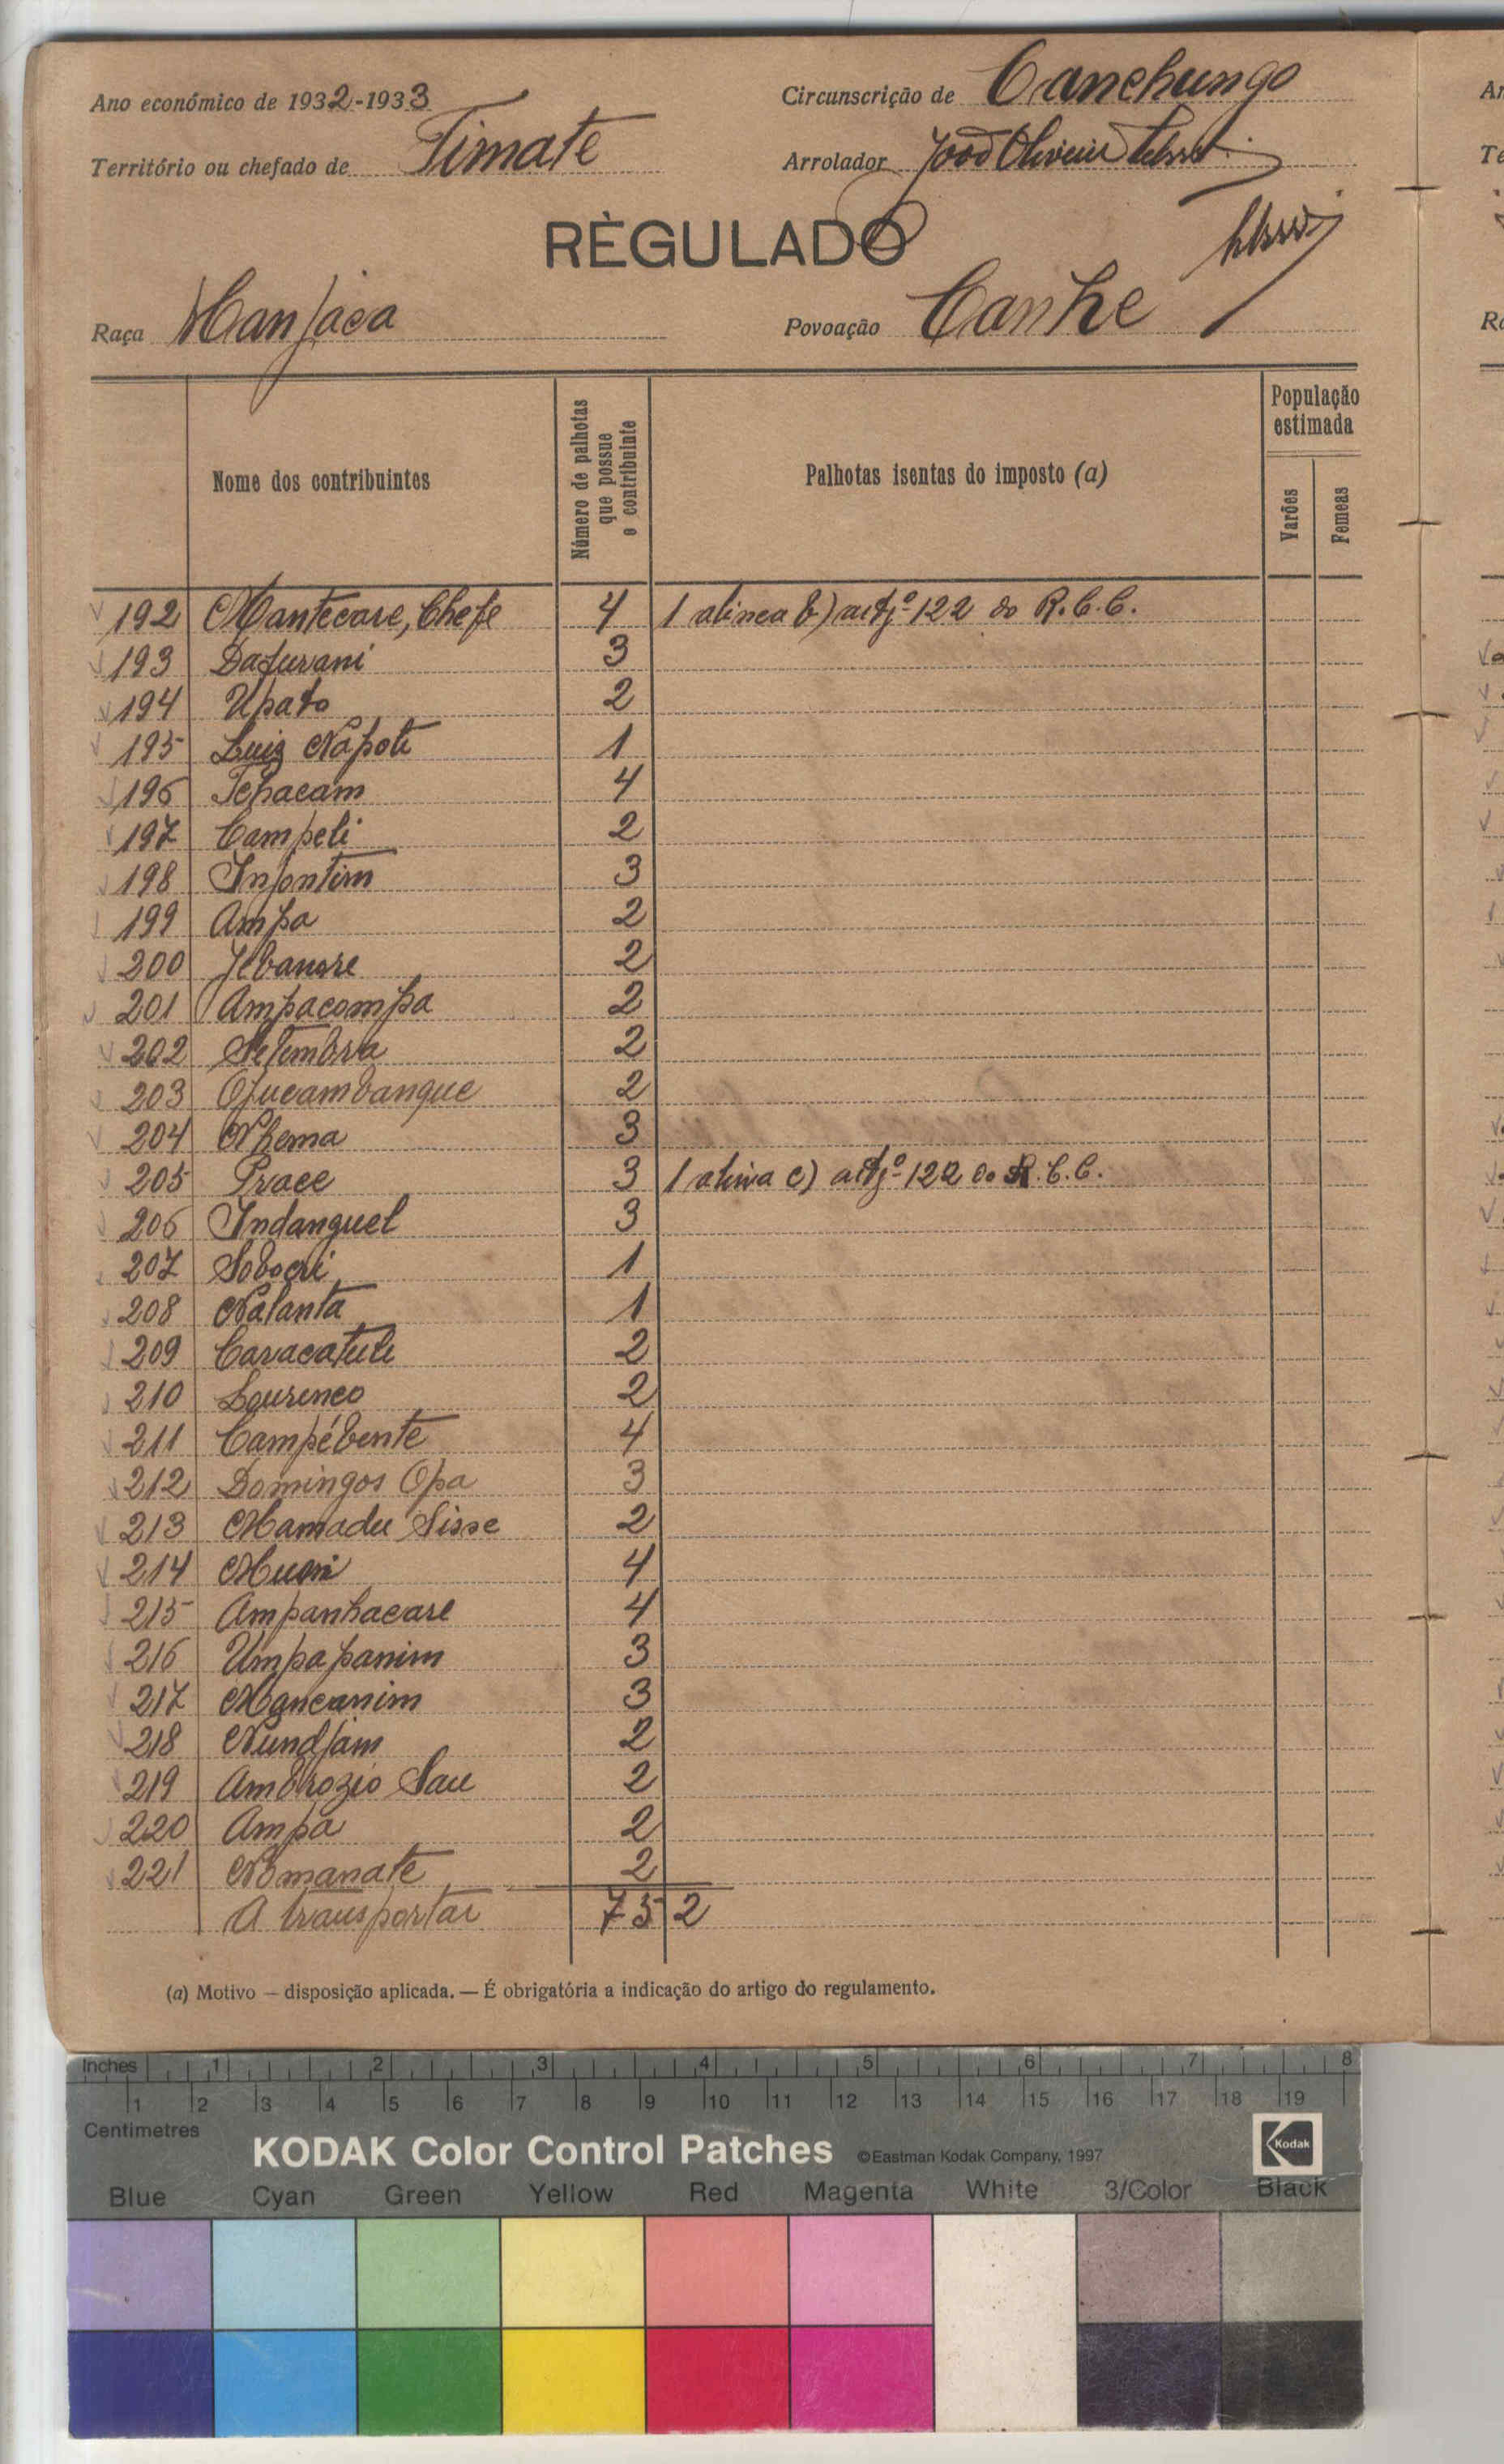 Ano económico de 1932-1933
Circunscrição de Canchungo
Território ou chefado de Timate
Arrolador João Oliveira
RÈGULADO
Raça Manjaca
Povoação Canhe
Nome dos contribuintes
Número de palhotas que possue o contribuinte
Palhotas isentas do imposto (a)
População estimada
Varões
Femeas
192 Mantecare, Chefe 4 1 alinea b) artgº 122 do R.C.C.
193 Dafurani 3
194 Upato 2
195 Luiz Napoti 1
196 Tchacam 4
197 Campeli 2
198 Infontim 3
199 Ampa 2
200 Jebanare 2
201 Ampacompa 2
202 Setembra 2
203 Ojucambangue 2
204 Nhema 3
205 Prace 3 1 alinia c) artgº 122 do R.C.C.
206 Indanguel 3
207 1
208 Nalanta 1
209 Caracatule 2
210 Lourenco 2
211 Campébente 4
212 Domingos Opa 3
213 Mamadu Sisse 2
214 4
215 Ampanhacare 4
216 Umpapanim 3
217 Mancanim 3
218 Nundjam 2
219 Ambrozio Sau 2
220 Ampa 2
221 Nomanate 2
A transportar 75 2
(a) Motivo — disposição aplicada. — É obrigatória a indicação do artigo do regulamento.
Inches 1 2 3 4 5 6 7 8
1 2 3 4 5 6 7 8 9 10 11 12 13 14 15 16 17 18 19
Centimetres
KODAK Color Control Patches ©Eastman Kodak Company, 1997 Kodak
Blue Cyan Green Yellow Red Magenta White 3/Color Black